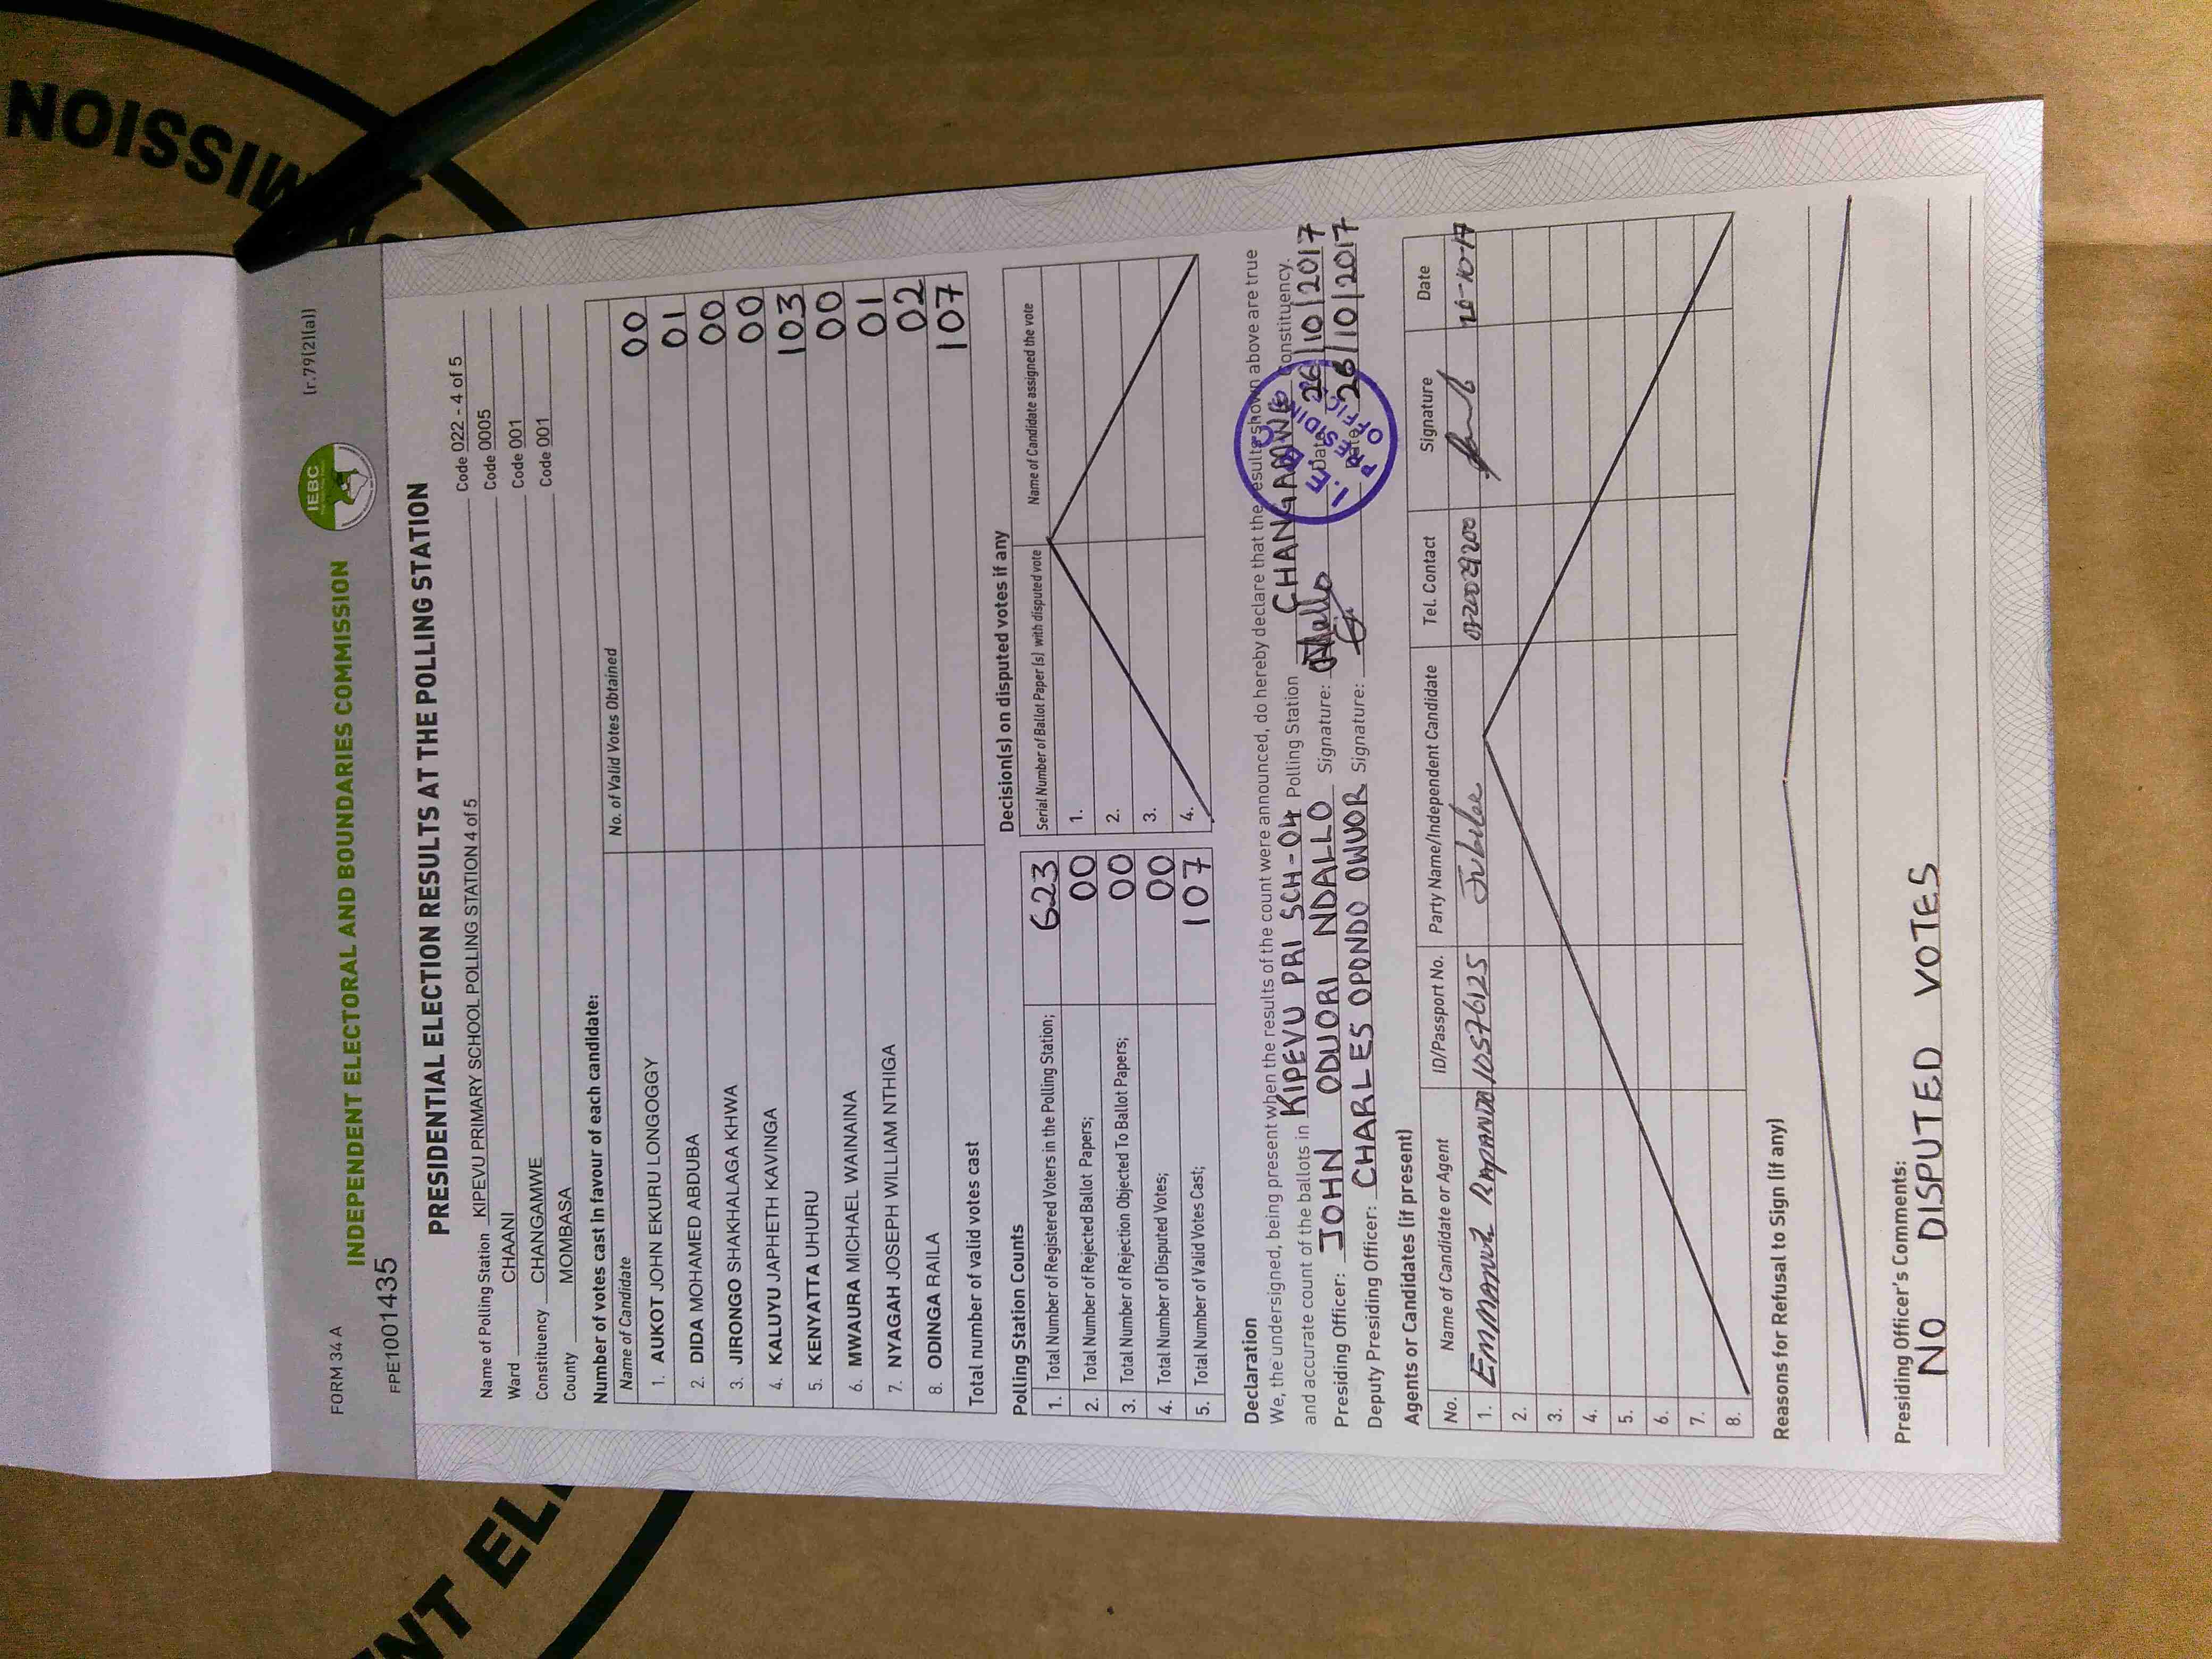 NOISSIM
ENT ELE
FORM 34 A
(r.79(2)(a))
INDEPENDENT ELECTORAL AND BOUNDARIES COMMISSION
IEBC
FPE1001435
PRESIDENTIAL ELECTION RESULTS AT THE POLLING STATION
Name of Polling Station KIPEVU PRIMARY SCHOOL POLLING STATION 4 of 5 Code 022 - 4 of 5
Ward CHAANI Code 0005
Constituency CHANGAMWE Code 001
County MOMBASA Code 001
Number of votes cast in favour of each candidate:
Name of Candidate No. of Valid Votes Obtained
1. AUKOT JOHN EKURU LONGOGGY 00
2. DIDA MOHAMED ABDUBA 01
3. JIRONGO SHAKHALAGA KHWA 00
4. KALUYU JAPHETH KAVINGA 00
5. KENYATTA UHURU 103
6. MWAURA MICHAEL WAINAINA 00
7. NYAGAH JOSEPH WILLIAM NTHIGA 01
8. ODINGA RAILA 02
Total number of valid votes cast 107
Polling Station Counts
1. Total Number of Registered Voters in the Polling Station; 623
2. Total Number of Rejected Ballot Papers; 00
3. Total Number of Rejection Objected To Ballot Papers; 00
4. Total Number of Disputed Votes; 00
5. Total Number of Valid Votes Cast; 107
Decision(s) on disputed votes if any
Serial Number of Ballot Paper (s) with disputed vote Name of Candidate assigned the vote
1.
2.
3.
4.
Declaration
We, the undersigned, being present when the results of the count were announced, do hereby declare that the results shown above are true
and accurate count of the ballots in KIPEVU PRI SCH-04 Polling Station CHANGAMWE Constituency.
Presiding Officer: JOHN ODUORI NDALLO Signature: Date: 26/10/2017
Deputy Presiding Officer: CHARLES OPONDO OWUOR Signature: Date: 26/10/2017
I.E.B.C
PRESIDING
OFFICER
Agents or Candidates (if present)
No. Name of Candidate or Agent ID/Passport No. Party Name/Independent Candidate Tel. Contact Signature Date
1. EMMANUEL 10576125 Jubilee 26-10-17
2.
3.
4.
5.
6.
7.
8.
Reasons for Refusal to Sign (if any)
Presiding Officer's Comments:
NO DISPUTED VOTES